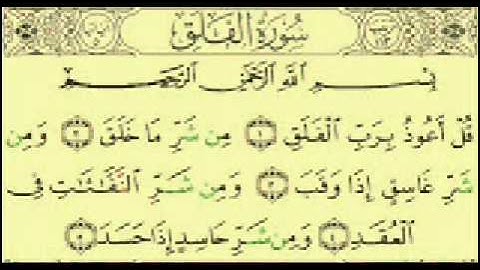 سُورَةُ الفَلَقِ
بِسْمِ اللَّهِ الرَّحْمَٰنِ الرَّحِيمِ
قُلْ أَعُوذُ بِرَبِّ الْفَلَقِ ١ مِن شَرِّ مَا خَلَقَ ٢ وَمِن
شَرِّ غَاسِقٍ إِذَا وَقَبَ ٣ وَمِن شَرِّ النَّفَّاثَاتِ فِي
الْعُقَدِ ٤ وَمِن شَرِّ حَاسِدٍ إِذَا حَسَدَ